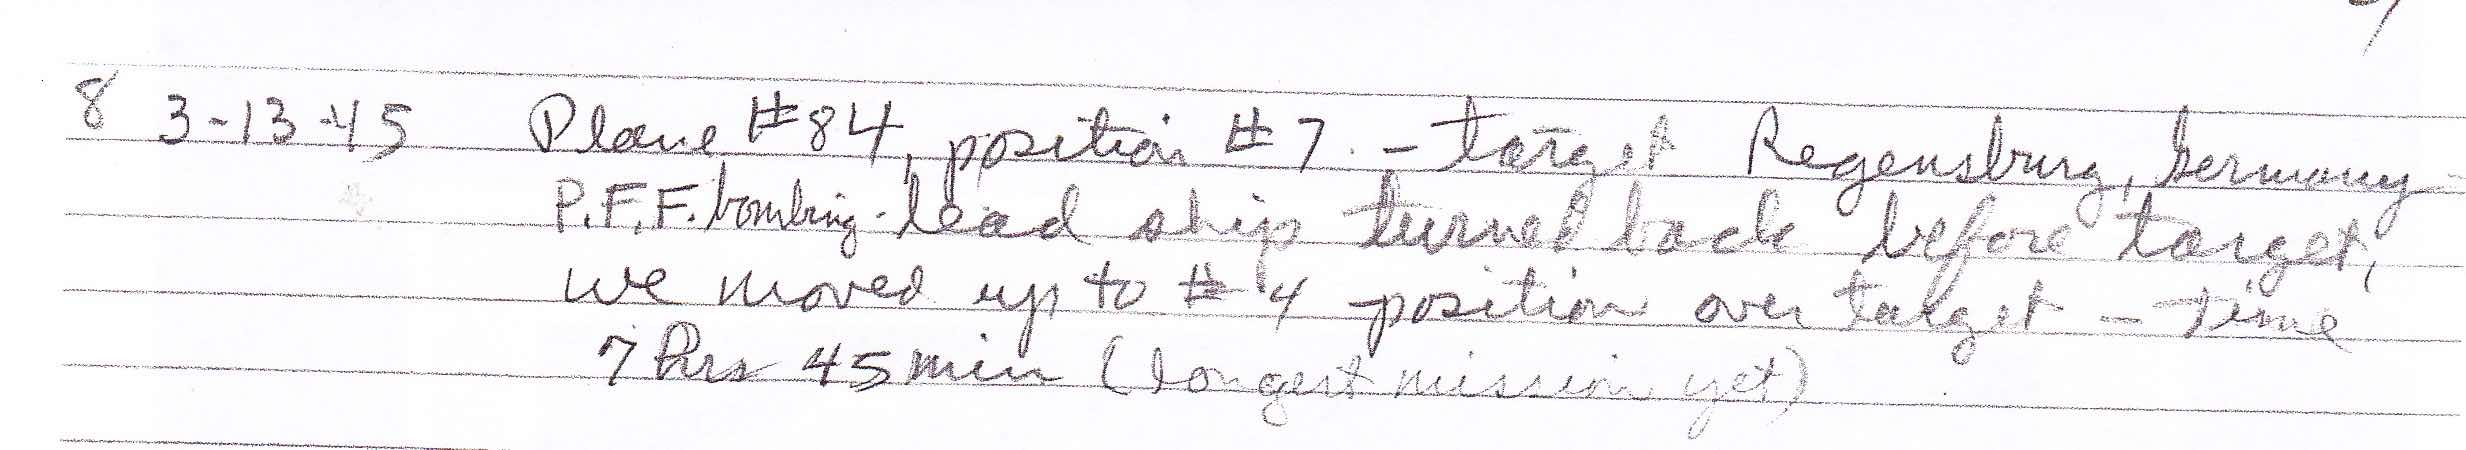 8 3-13-45 Plane #84, position #7. - target Regensburg, Germany
P.F.F. bombing - lead ship turned back before target,
we moved up to #4 position over target - Time
7 hrs 45 min (longest mission yet)